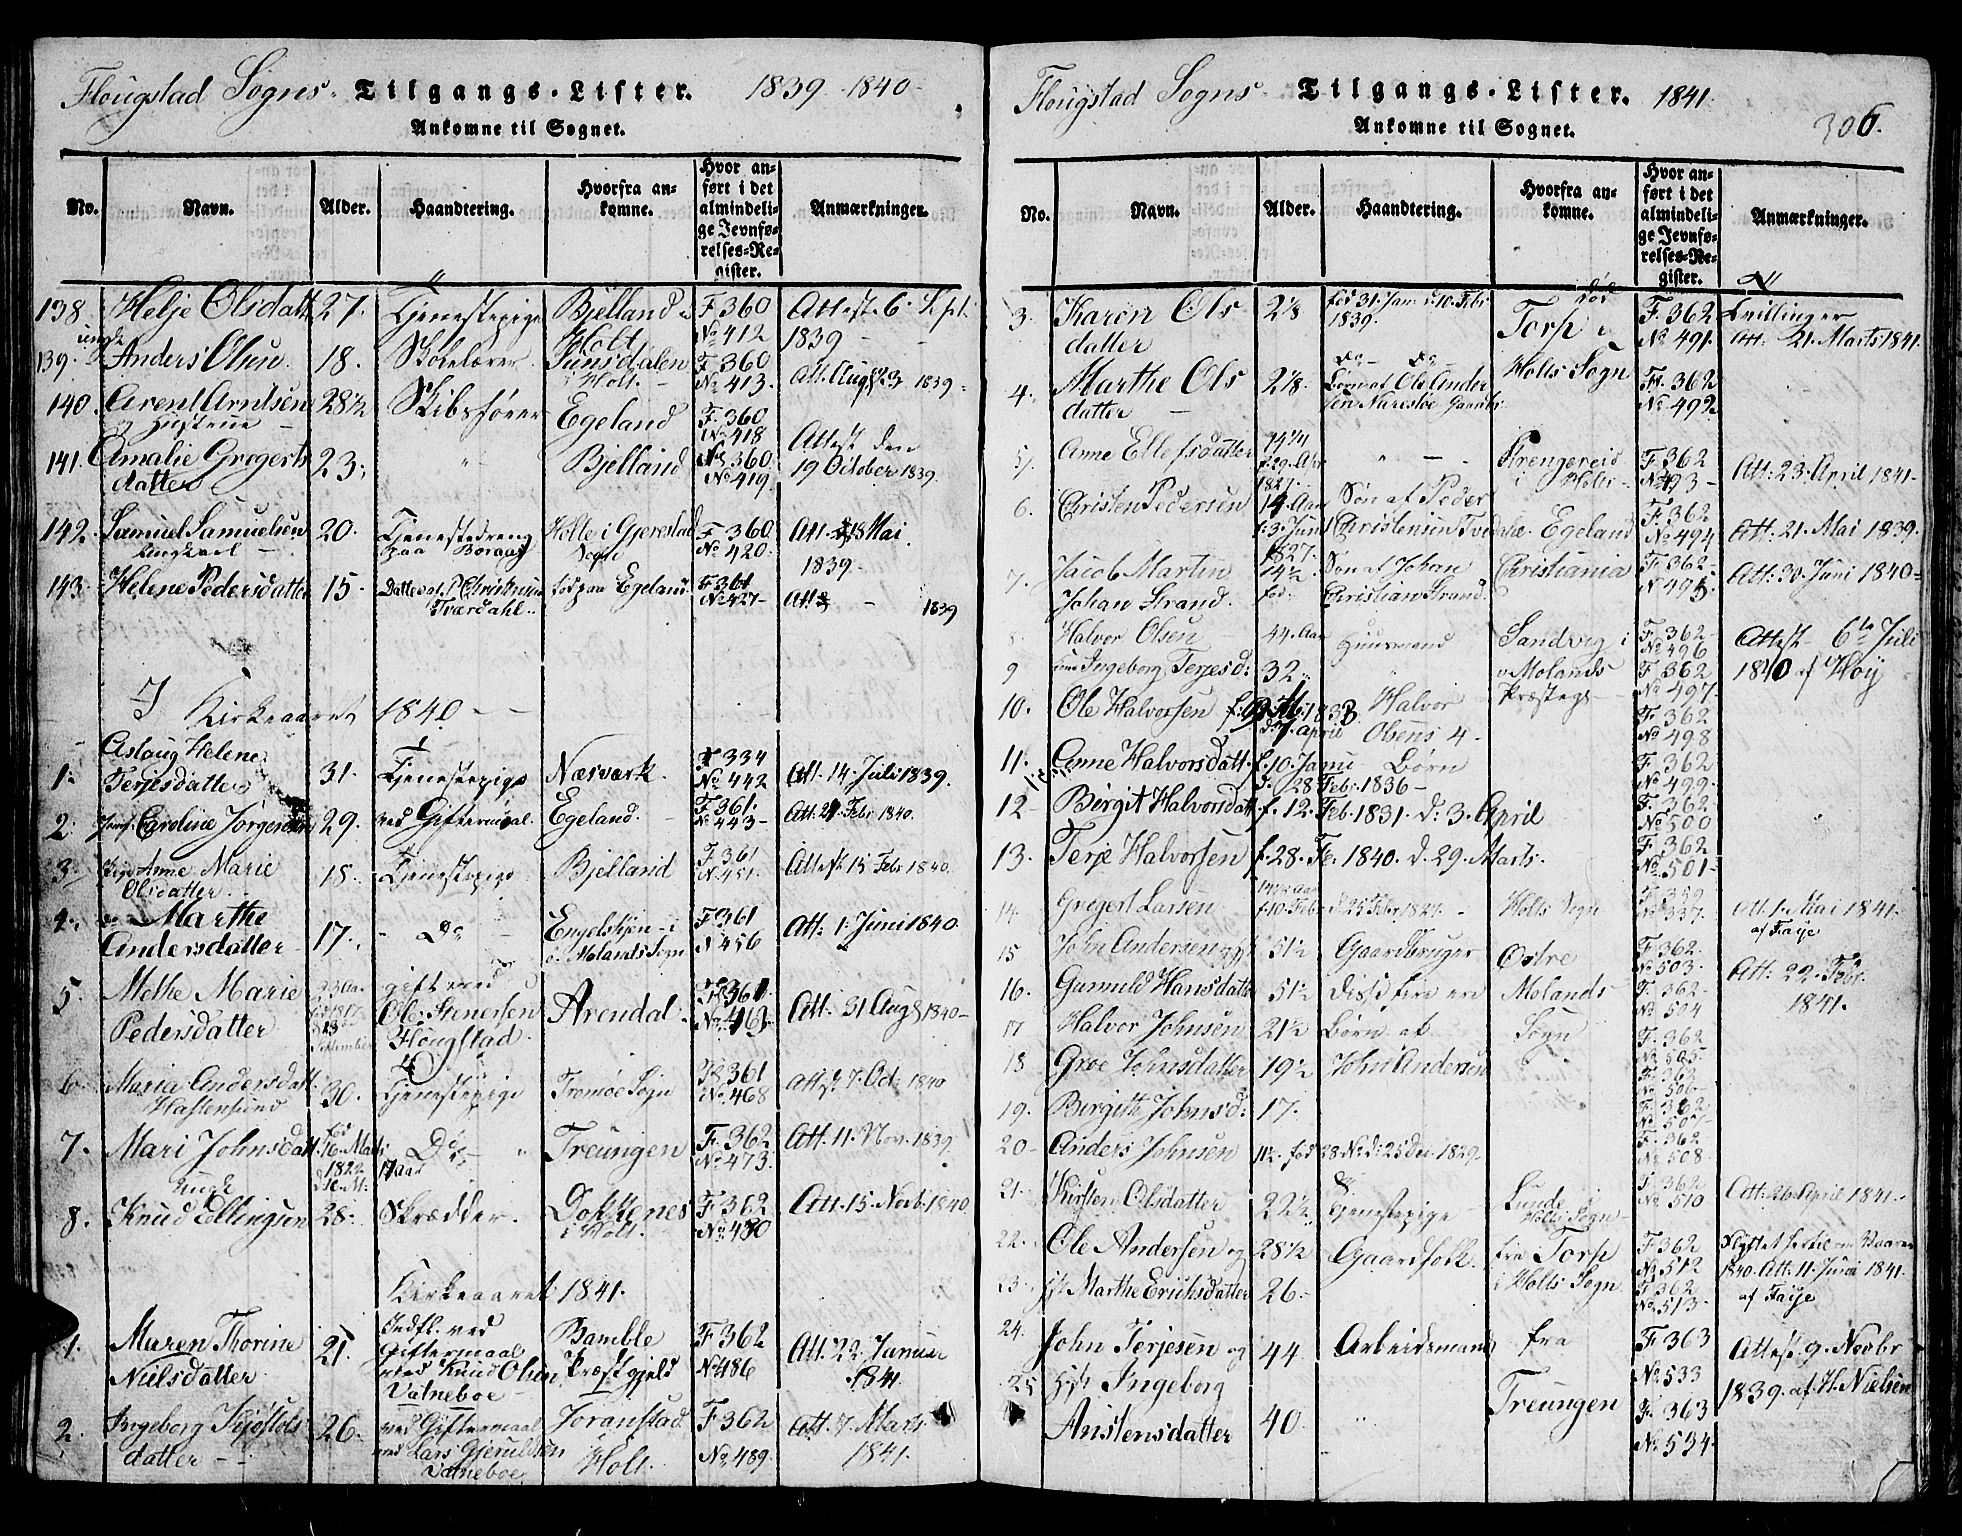 Flougstad Sogns Tilgangs-Lister. 1839-1840
Ankomne til Sognet.
No. Navn. Alder. Haandtering. Hvorfra ankomne. Hvor anført i det almindelige Jevnførelses-Register. Anmærkninger.
138 Helje Olsdatt 27. Tjenestepige Bjelland i Holt F 360 No 412 Attest 6. Sept. 1839
139. unge Anders Olsen 18. Skolelærer Holt F 360 No 413. Att. Aug 23 1839.
140 Arent Arntsen 28½ Skibsfører Egeland F. 360 No 418
og Hustrue
141. Amalie Gregers 23. " Bjelland F 360 No 419. Attest den 19 October 1839.
datter
142. Samuel Samuelsen 20. Tjenestedreng Holte i Gjerestad F 360 Att. 18 Mai
Ungkarl paa Boraas Sogn No 420. 1839.
143. Helene Pedersdatter 15 Datter af P Christensen fød paa Egeland F 361 No 427 Att 1839
Tværdahl.
I Kirkeaaret 1840
1. Aslaug Helene Terjesdatter 31. Tjenestepige Næsværk. F 334 No 442 Att. 14 Juli 1839.
2. Caroline Jørgens 29. ved Giftermaal. Egeland. F. 361. No 443 Att. 21 Febr 1840.
3. Pige Anne Marie 18. Tjenestepige Bjelland F 361 No 451. Attest 15 Febr 1840.
Olsdatter
4. do Marthe 17. Do Engelskjøn i F 361 Att: 1 Juni 1840.
Andersdatter ø. Molands Sogn No 456
5. Methe Marie 23 Aar gift med Arendal. F. 361 No 463 Att. 31 Aug 1840
Pedersdatter Ole Stenersen
Flougstad.
6. Maria Andersdatt 30. Tjenestepige Tromøe Sogn F. 361 No. 468 Attst 7. Oct. 1840
7. Mari Johnsdatt fød 16. Marts 1822 17 Aar Do Treungen F. 362 No 473. Att. 11. Nov. 1839.
8. Knud Ellingsen 28. Skrædder. Dokkenes i Holt. F 362 No. 480 Att. 15. Novb. 1840
Kirkeaaret 1841.
1. Maren Thorine 21. Indfl. ved Bamble F 362 Att 22. Januar
Nielsdatter. Giftermaal Præstgjeld No 486 1841.
med Knud Olsen
Valneboe
2. Ingeborg Kjøstols 26. ved Giftermaal Joranstad F 362 Att. 7. Marts
datter med Lars Gjeruldsen Holt. No. 489. 1841.
Valneboe
Flougstad Sogns Tilgangs-Lister. 1841.
Ankomne til Sognet. 306.
No. Navn. Alder. Haandtering. Hvorfra ankomne. Hvor anført i det almindelige Jevnførelses-Register. Anmærkninger.
3. Karen Ols 2⅛ fød 31. Jan. d. 10. Febr 1839. Torp i F. 362 No 491. Att. 21. Marts 1841.
datter
4. Marthe Ols 2⅛. Do Do Holts Sogn F. 362 No 492.
datter Børn af Ole Ander
sen Narestøe
5. Anne Ellefsdatter f. 29. Apr 1827. Krengereid i Holts F. 362 No 493 Att. 23. April 1841.
6. Christen Pedersen 14 Aar Søn af Peder F. 362
f. 3. Juni 1827. Christensen Tvedale Egeland No 494 Att. 21. Mai 1839.
7. Jacob Martin 14½ Søn af Johan Christiania F. 362 Att. 30 Juni 1840
Johan Strand. Christian Strand No 495.
8. Halvor Olsen 44. Aar Huusmand Sandvig i F. 362 No 496 Attest 6te Juli
9 Ingeborg Terjesd: 32 ø Molands F 362 No 497. 1840 af Høy
10. Ole Halvorsen Halvor Præsteg. F. 362 No 498
d. 7. April Olsens 4
11. Anne Halvorsdatt. f. 10. Janu Børn F. 362 No 499.
d. 28 Febr 1836
12 Birgit Halvorsdatt f. 12. Feb. 1831. d: 3. April F 362. No 500
13. Terje Halvorsen f. 28. Fe. 1840. d. 29. Marts. F. 362 No. 501
14. Gregert Larsen f. 10. Febr d 25 Febr 1827. Holts Sogn No 337. Att. 1. Mai 1841.
af Faije
15 John Andersen og 51½ Gaardbruger Østre F 362. No 503. Att: 22. Febr.
16. Gunnuld Hansdatter 51½ Disse fire ere Molands F. 362 No 504 1841.
17 Halvor Johnsen 21½ Børn af Sogn F. 362 No 505
18 Groe Johnsdatter 19½ John Andersen F. 362 No 506
19. Birgitte Johnsd: 17. F. 362 No 507
20 Anders Johnsen 11½. fød 28. No. d: 25 Dec. 1829. F. 362 No 508.
21. Kirsten Olsdatter 22½ Tjenestepige Lunde i Holts Sogn F. 362 No 510 Att. 26. April 1841.
22. Ole Andersen og 28½ Gaardfolk. fra Torp F. 362 No 512 Flyttet hertil om Vaaren
23. Marthe Erichsdatter 26. i Holts Sogn F 362 No. 513. 1840. Att. 11. Juni 1841.
af Faije
24. John Terjesen og 44 Arbeidsmand fra F 363 Attest 9. Novbr
25 H. Ingeborg Treungen No. 533 1839. af H. Nielsen
Anstensdatter 40. " F. 363 No 534.